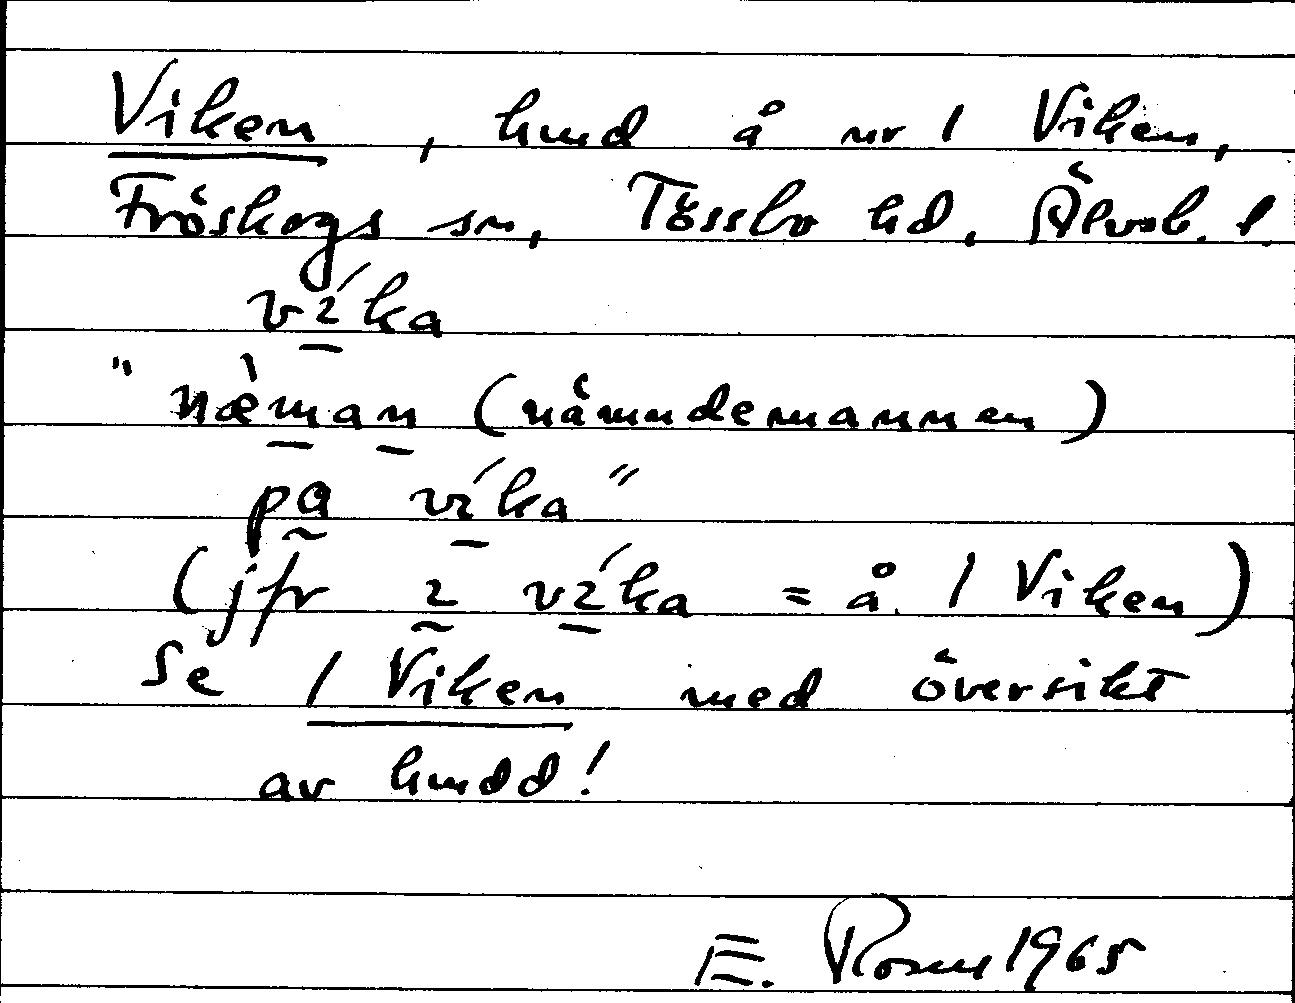 Viken, hmd å nr 1 Viken,
Fröskogs sn, Tössbo hd, Älvsb. l.
víka
"næ̀man (nämndemannen)
på víka"
(jfr i víka = å 1 Viken)
Se 1 Viken med översikt
av hmdd!
E. 1965